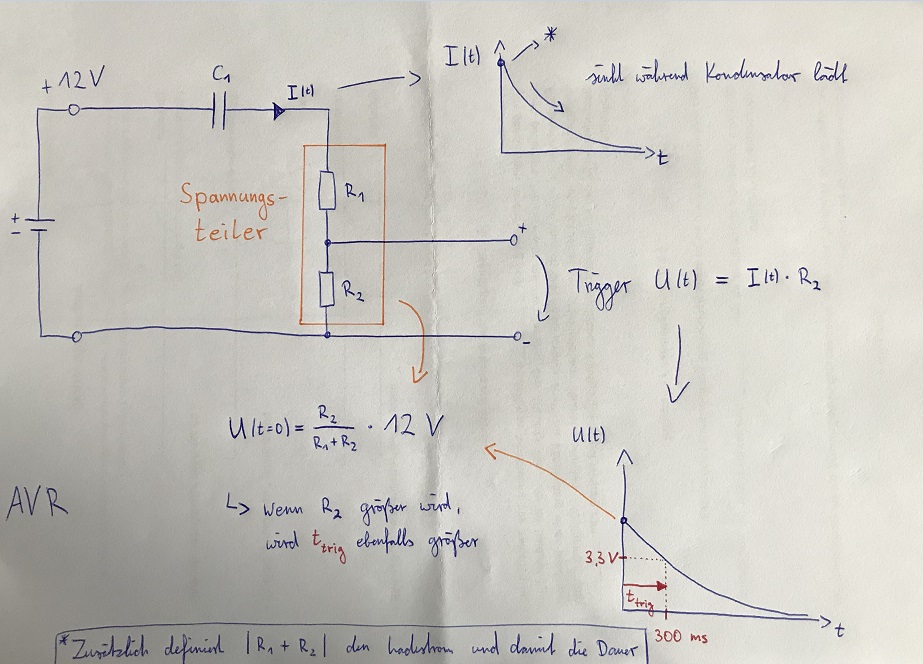 +12V
C1
I(t)
I(t)
*
sinkt während Kondensator lädt
t
Spannungs-
teiler
R1
R2
+
-
+
-
Trigger U(t) = I(t) · R2
U(t=0) = R2 / (R1 + R2) · 12 V
U(t)
AVR
↳ wenn R2 größer wird,
wird t_trig ebenfalls größer
3,3V
t_trig
t
300 ms
*Zusätzlich definiert |R1 + R2| den Ladestrom und damit die Dauer